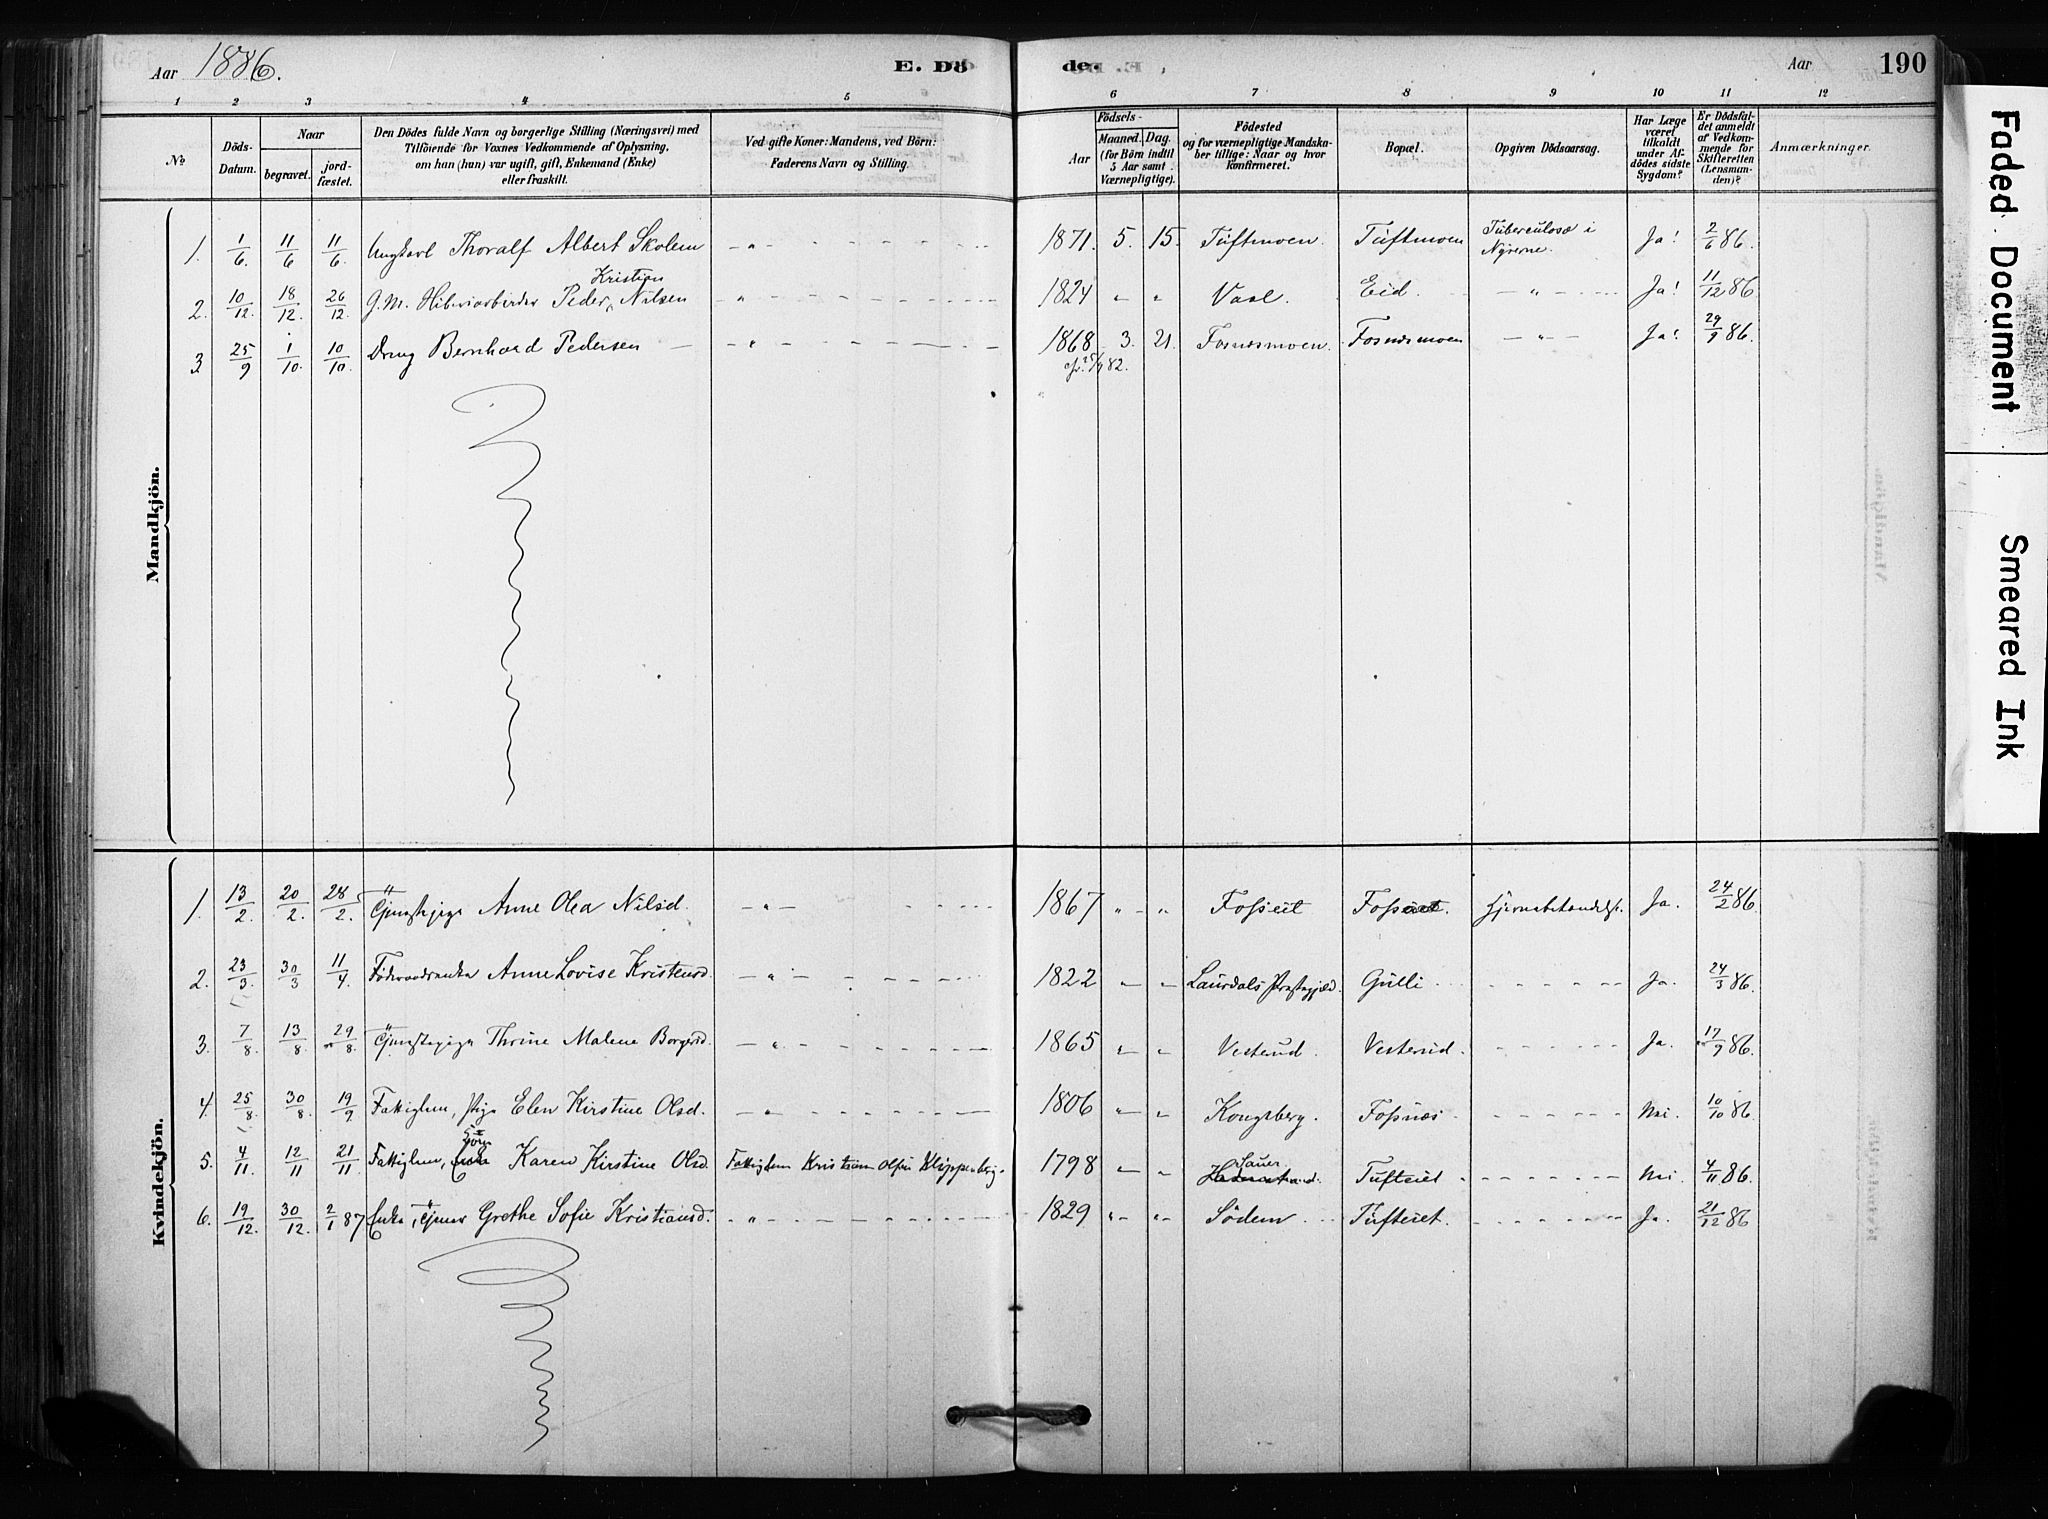 Aar 1886. E. Dö de. Aar 190
1 2 3 4 5 6 7 8 9 10 11 12
No
Döds-Datum.
Naar
begravet. jord-fæstet.
Den Dödes fulde Navn og borgerlige Stilling (Næringsvei) med
Tilföiende for Voxnes Vedkommende af Oplysning,
om han (hun) var ugift, gift, Enkemand (Enke)
eller fraskilt.
Ved gifte Koner: Mandens, ved Börn:
Faderens Navn og Stilling.
Födsels-
Aar
Maaned. Dag.
(for Börn indtil
5 Aar samt
Værnepligtige).
Födested
og for værnepligtige Mandska-
ber tillige: Naar og hvor
konfirmeret.
Bopæl.
Opgiven Dödsaarsag.
Har Læge
været
tilkaldt
under Af-
dödes sidste
Sygdom?
Er Dödsfal-
det anmeldt
af Vedkom-
mende for
Skifteretten
(Lensman-
den)?
Anmærkninger.
Mandkjön.
1. 1/6. 11/6 11/6. Thoralf Albert Skolem - " - 1871. 5. 15. Tuftmoen. Tuftmoen Tuberculose i Nyrerne. Ja! 2/6 86.
Kristian
2. 10/12. 18/12. 26/12. G.M. Peder, Nilsen " 1824 " " Vaal. Eid. - " - Ja! 11/12 86
3. 25/9 1/10. 10/10. Dreng Bernhard Pedersen - " - 1868 3. 21. Fosnæsmoen. Fosnæsmoen - " - Ja! 29/9 86.
82.
Kvindekjön.
1. 13/2. 20/2. 28/2. Anne Olea Nilsd. - " - 1867 " " Fosseiet Fosseiet. Ja. 24/2 86.
2. 23/3. 30/3 11/4. Anne Lovise Kristensd. - " - 1822 " " Laurdals Præstegjeld. Gulli Ja. 24/3 86.
3. 7/8. 13/8. 29/8. Thrine Malene Borgersd. - " - 1865 " " Vesterud. Vesterud. Ja. 17/9 86.
4. 25/8. 30/8. 19/9. Fattiglem, Pige Elen Kirstine Olsd. - " - 1806 " " Kongsberg. Fosnæs. Nei. 10/10 86.
5. 4/11. 12/11 21/11. Fattiglem, Karen Kirstine Olsd. Fattiglem Kristian Olsen Klippenberg. 1798 " " Sauer Tufteiet Nei. 4/11 86.
6. 19/12. 30/12. 2/1 87 Enke, Grethe Sofie Kristiansd. - " - 1829 " " Södem Tufteiet. Ja. 21/12 86
Faded Document
Smeared Ink